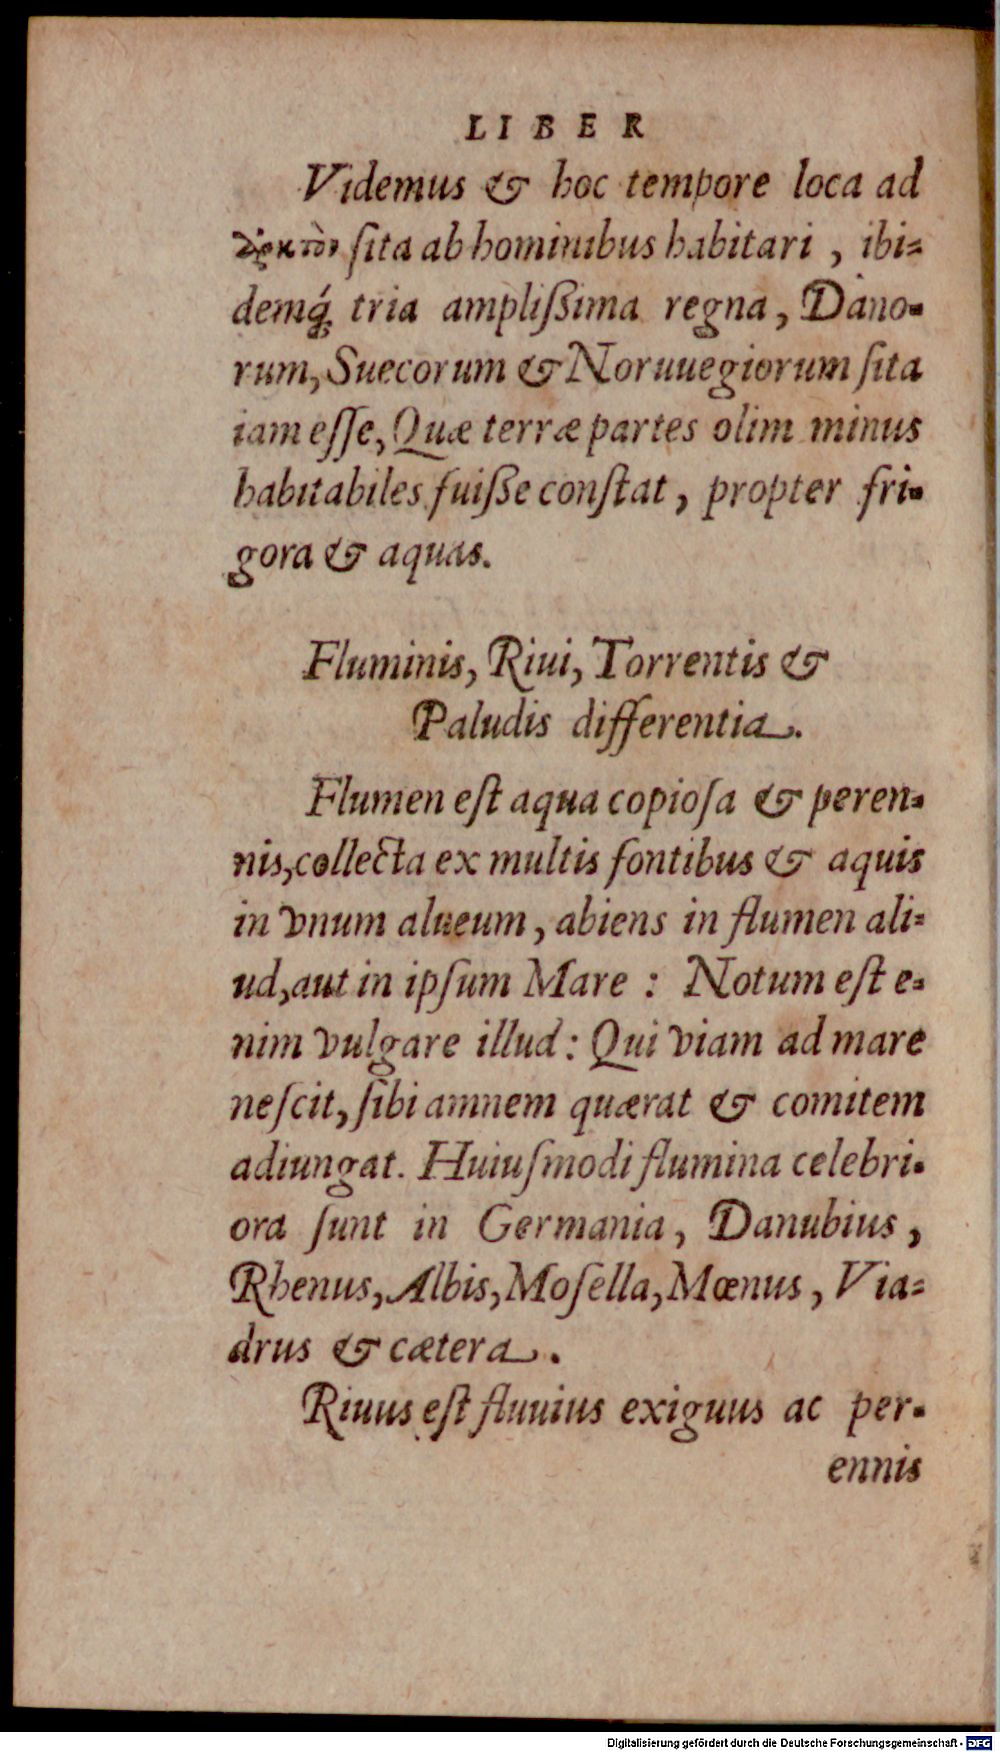 LIBER
Videmus & hoc tempore loca ad
ἄρκτον ſita ab hominibus habitari , ibi=
demq́; tria ampliſsima regna, Dano=
rum, Suecorum & Noruuegiorum ſita
iam eſſe, Quæ terræ partes olim minus
habitabiles fuiſse conſtat, propter fri=
gora & aquas.
Fluminis, Riui, Torrentis &
Paludis differentia.
Flumen eſt aqua copioſa & peren=
nis, collecta ex multis fontibus & aquis
in vnum alueum, abiens in flumen ali=
ud, aut in ipſum Mare : Notum eſt e=
nim vulgare illud: Qui viam ad mare
neſcit, ſibi amnem quærat & comitem
adiungat. Huiuſmodi flumina celebri=
ora ſunt in Germania, Danubius,
Rhenus, Albis, Moſella, Mœnus, Via=
drus & cætera.
Riuus eſt fluuius exiguus ac per=
ennis
Digitalisierung gefördert durch die Deutsche Forschungsgemeinschaft - DFG